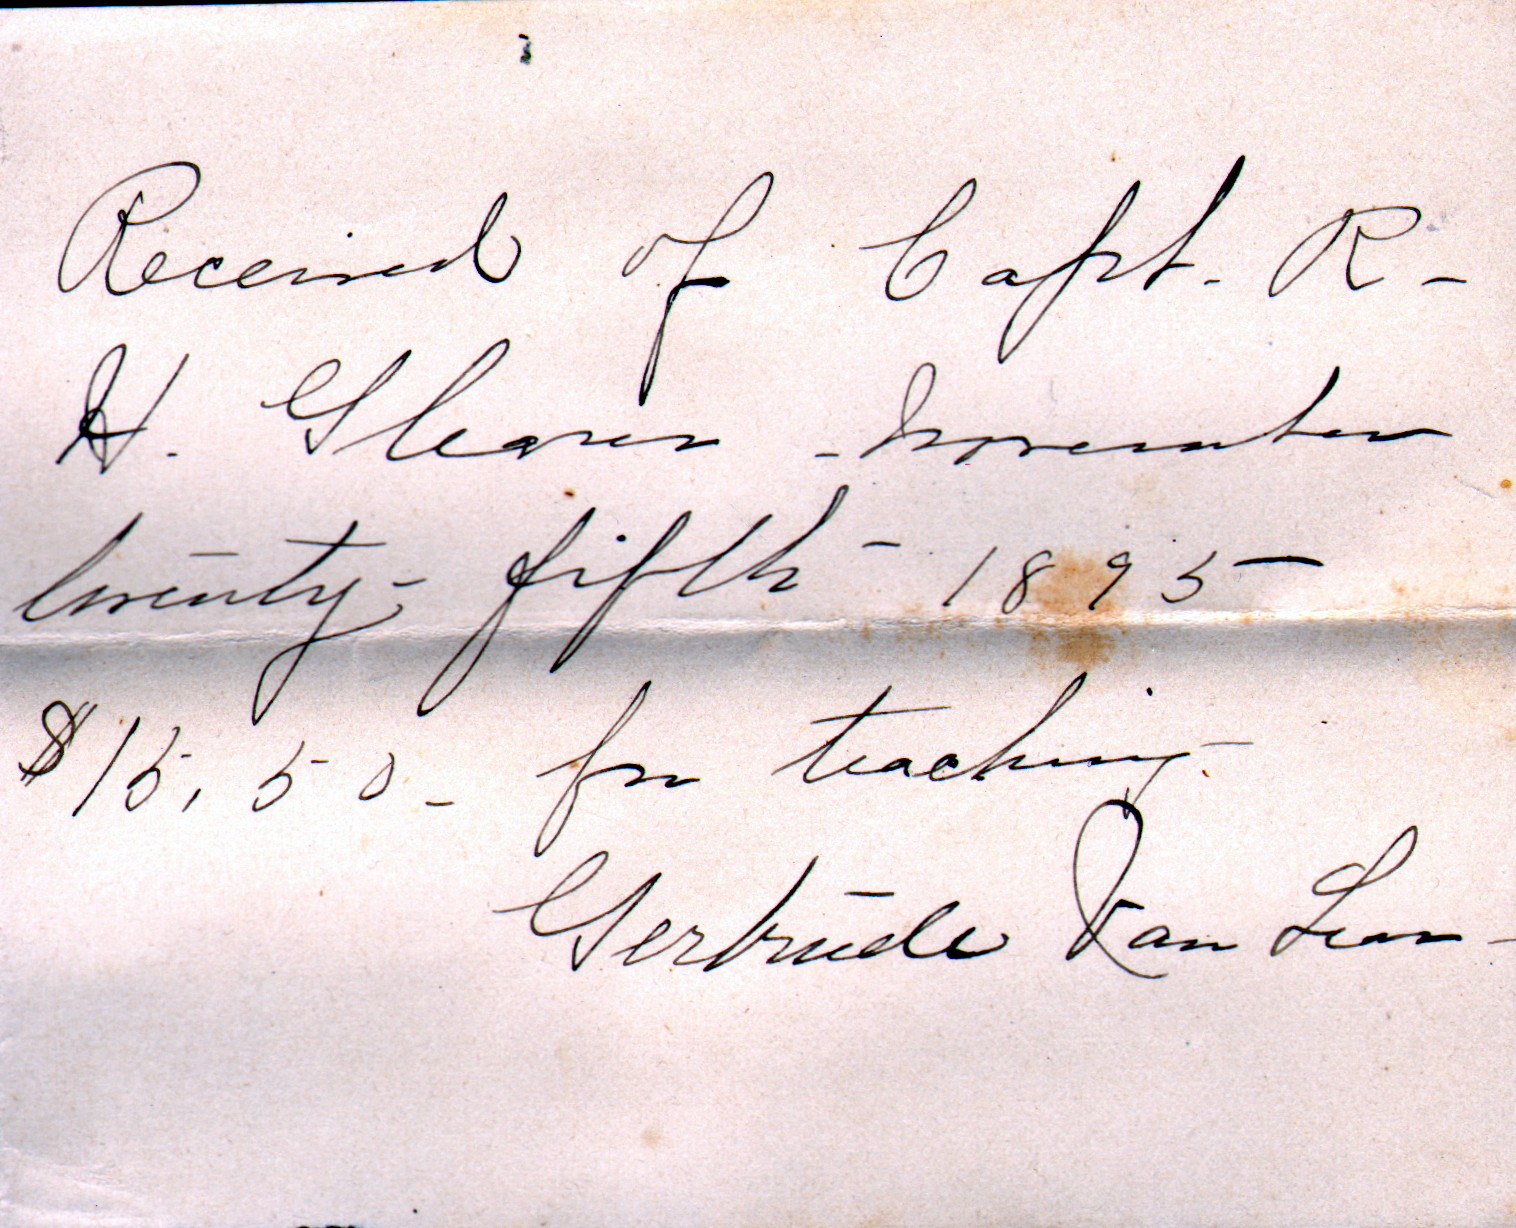 Received of Capt. R-
H. Gleaves - November
twenty-fifth - 1895
$15,50 - for teaching.
Gertrude Van